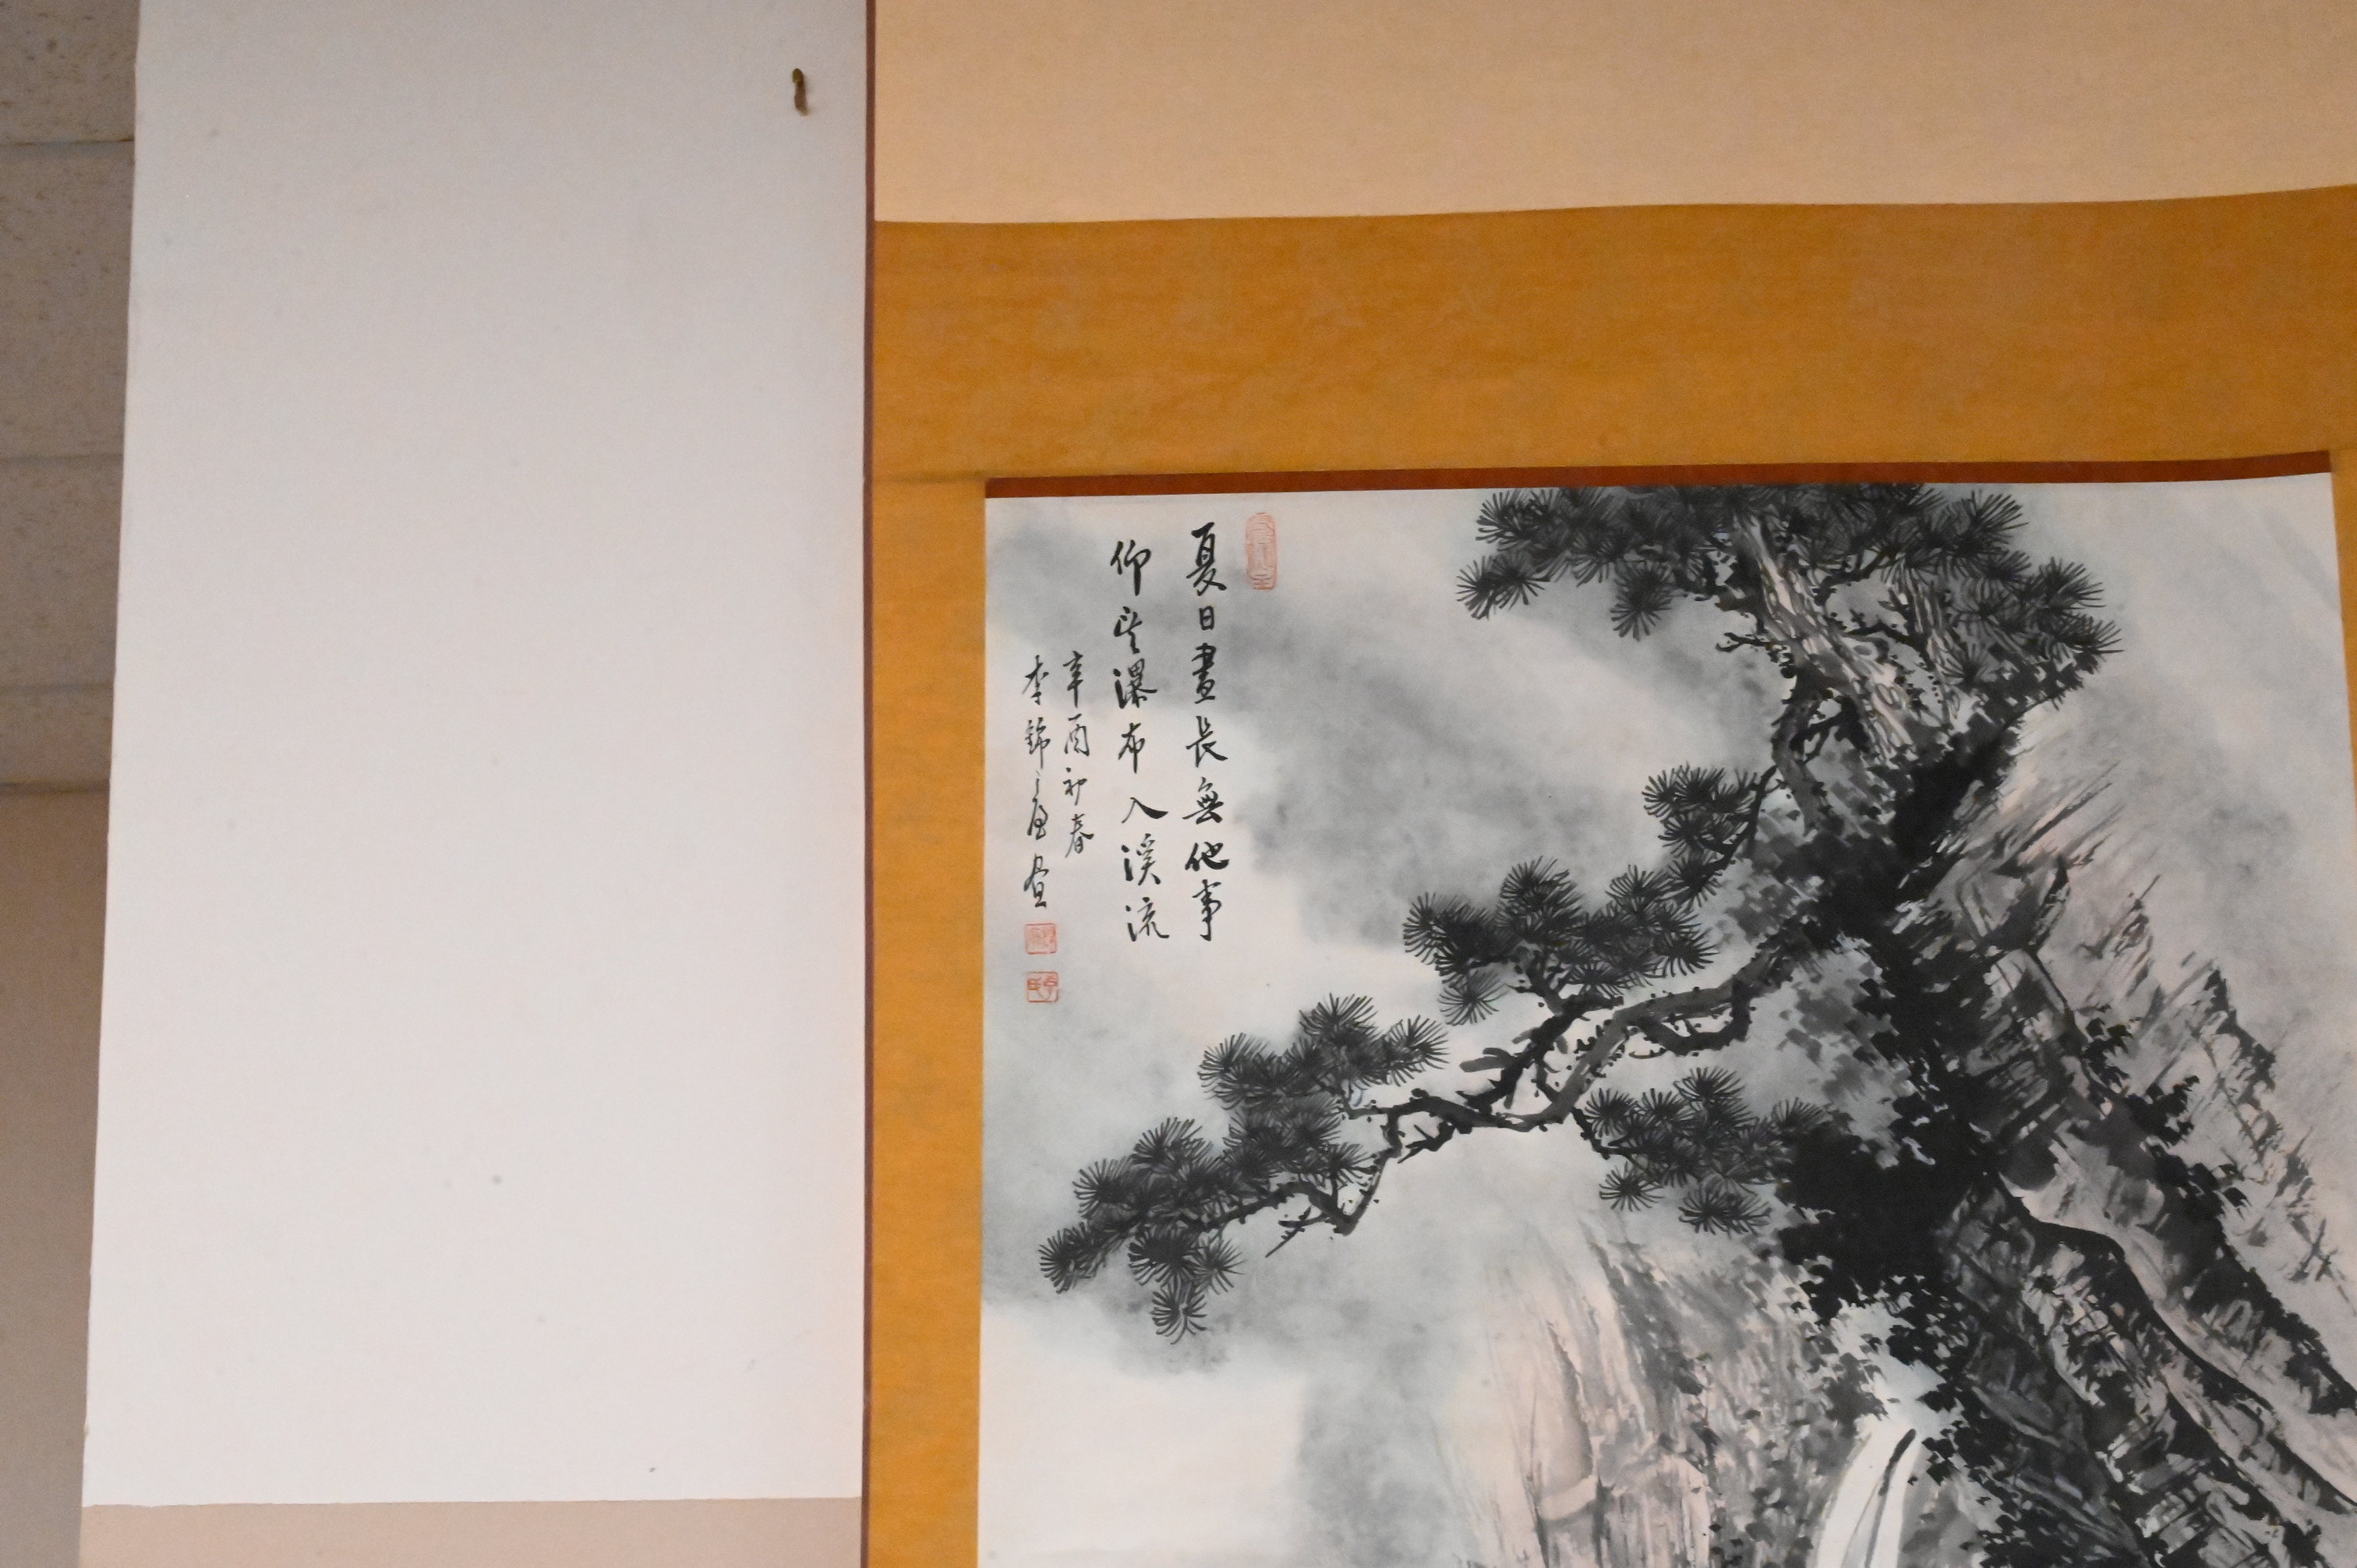 夏日晝長無他事
仰望瀑布入溪流
辛酉初春
李錦